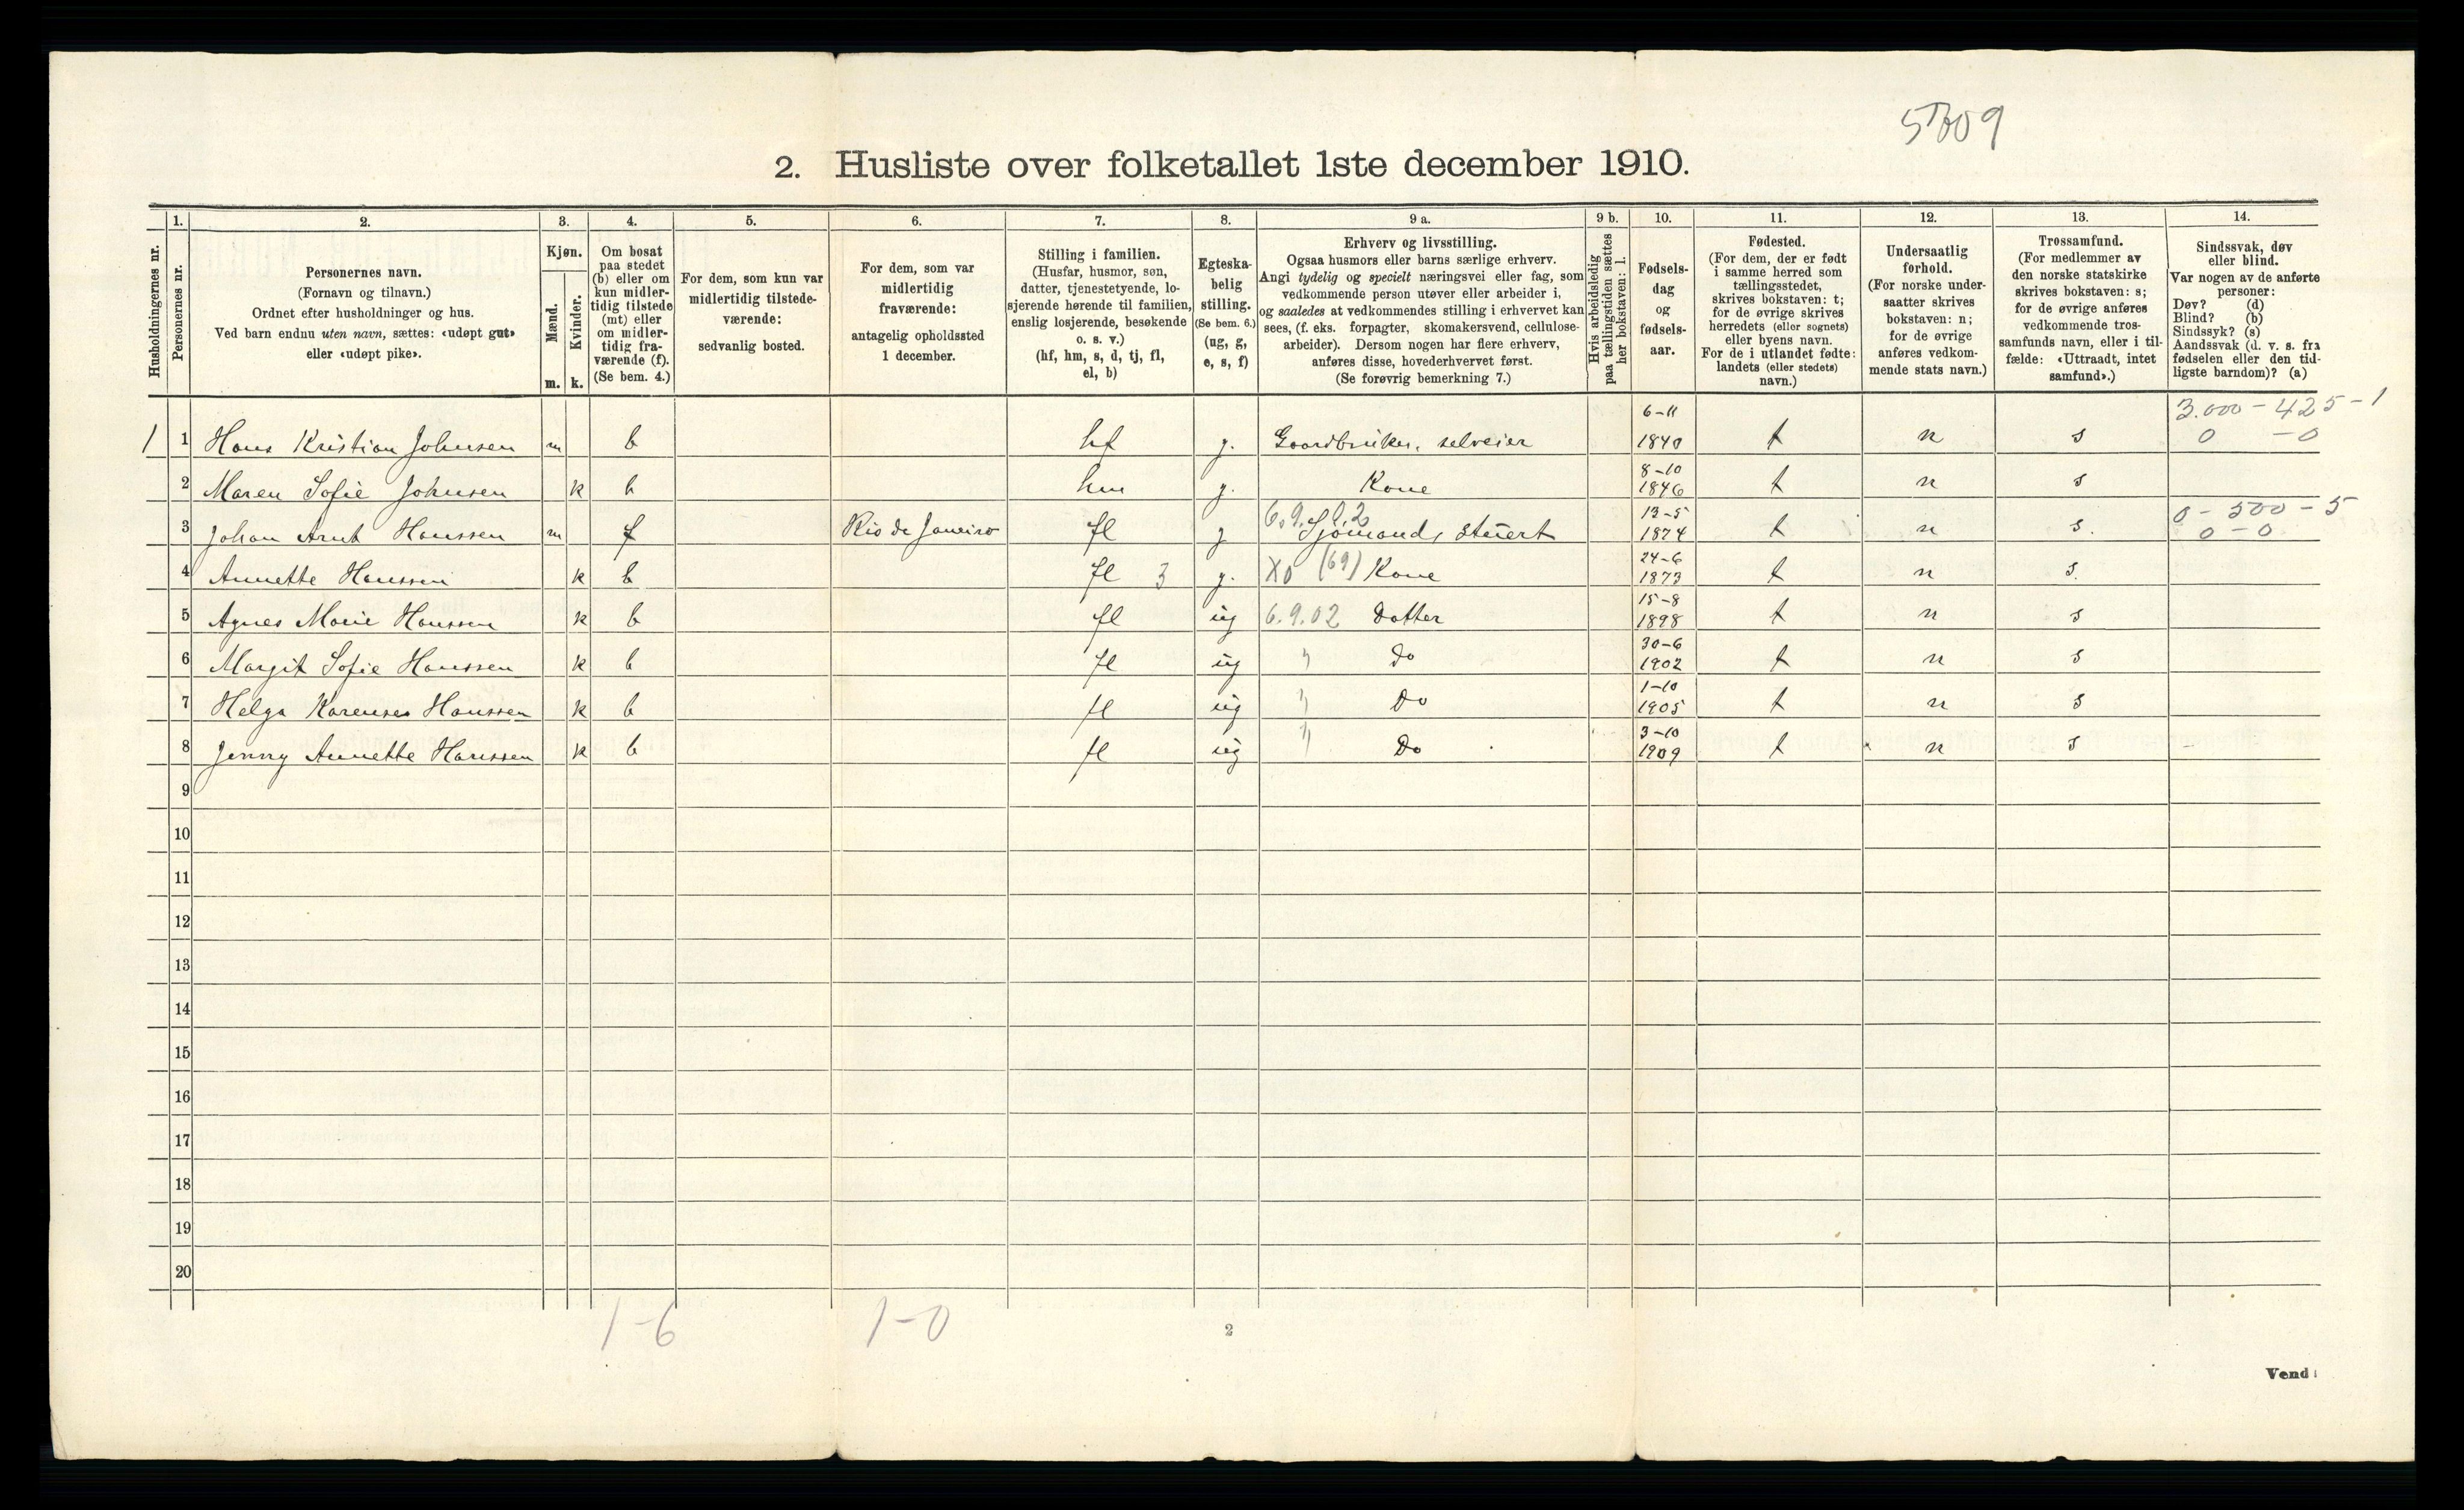 5809
2. Husliste over folketallet 1ste december 1910.
Husholdningernes nr.
1.
Personernes nr.
2.
Personernes navn.
(Fornavn og tilnavn.)
Ordnet efter husholdninger og hus.
Ved barn endnu uten navn, sættes: «udøpt gut»
eller «udøpt pike».
3.
Kjøn.
Mænd.
Kvinder.
m. k.
4.
Om bosat
paa stedet
(b) eller om
kun midler-
tidig tilstede
(mt) eller
om midler-
tidig fra-
værende (f).
(Se bem. 4.)
5.
For dem, som kun var
midlertidig tilstede-
værende:
sedvanlig bosted.
6.
For dem, som var
midlertidig
fraværende:
antagelig opholdssted
1 december.
7.
Stilling i familien.
(Husfar, husmor, søn,
datter, tjenestetyende, lo-
sjerende hørende til familien,
enslig losjerende, besøkende
o. s. v.)
(hf, hm, s, d, tj, fl,
el, b)
8.
Egteska-
belig
stilling.
(Se bem. 6.)
(ug, g,
e, s, f)
9 a.
Erhverv og livsstilling.
Ogsaa husmors eller barns særlige erhverv.
Angi tydelig og specielt næringsvei eller fag, som
vedkommende person utøver eller arbeider i,
og saaledes at vedkommendes stilling i erhvervet kan
sees, (f. eks. forpagter, skomakersvend, cellulose-
arbeider). Dersom nogen har flere erhverv,
anføres disse, hovederhvervet først.
(Se forøvrig bemerkning 7.)
9 b.
Hvis arbeidsledig
paa tællingstiden sættes
her bokstaven: l.
10.
Fødsels-
dag
og
fødsels-
aar.
11.
Fødested.
(For dem, der er født
i samme herred som
tællingsstedet,
skrives bokstaven: t;
for de øvrige skrives
herredets (eller sognets)
eller byens navn.
For de i utlandet fødte:
landets (eller stedets)
navn.)
12.
Undersaatlig
forhold.
(For norske under-
saatter skrives
bokstaven: n;
for de øvrige
anføres vedkom-
mende stats navn.)
13.
Trossamfund.
(For medlemmer av
den norske statskirke
skrives bokstaven: s;
for de øvrige anføres
vedkommende tros-
samfunds navn, eller i til-
fælde: «Uttraadt, intet
samfund».)
14.
Sindssvak, døv
eller blind.
Var nogen av de anførte
personer:
Døv? (d)
Blind? (b)
Sindssyk? (s)
Aandssvak (d. v. s. fra
fødselen eller den tid-
ligste barndom)? (a)
1 1 Hans Kristian Johnsen m b hf g. Gaardbruker, selveier 6-11 1840 t n s 3.000-425-1 0 -0
2 Maren Sofie Johnsen k b hm g. Kone 8-10 1846 t n s
3 Johan Arnt Hanssen m f Rio de Janeiro fl g 6.9.02 Sjømand, stuert 13-5 1874 t n s. 0-500-5 0-0
4 Annette Hanssen k b fl 3 g. X0 (69) Kone 24-6 1873 t n s.
5 Agnes Marie Hanssen k b fl ug 6.9.02 Datter 15-8 1898 t n s
6 Margit Sofie Hanssen k b fl ug " Do 30-6 1902 t n s
7 Helga Hanssen k b fl ug " Do 1-10 1905 t n s
8 Jenny Annette Hanssen k b fl ug " Do 3-10 1909 t n s
9
10
11
12
13
14
15
16
17
18
19
20
1-6 1-0
2
Vend